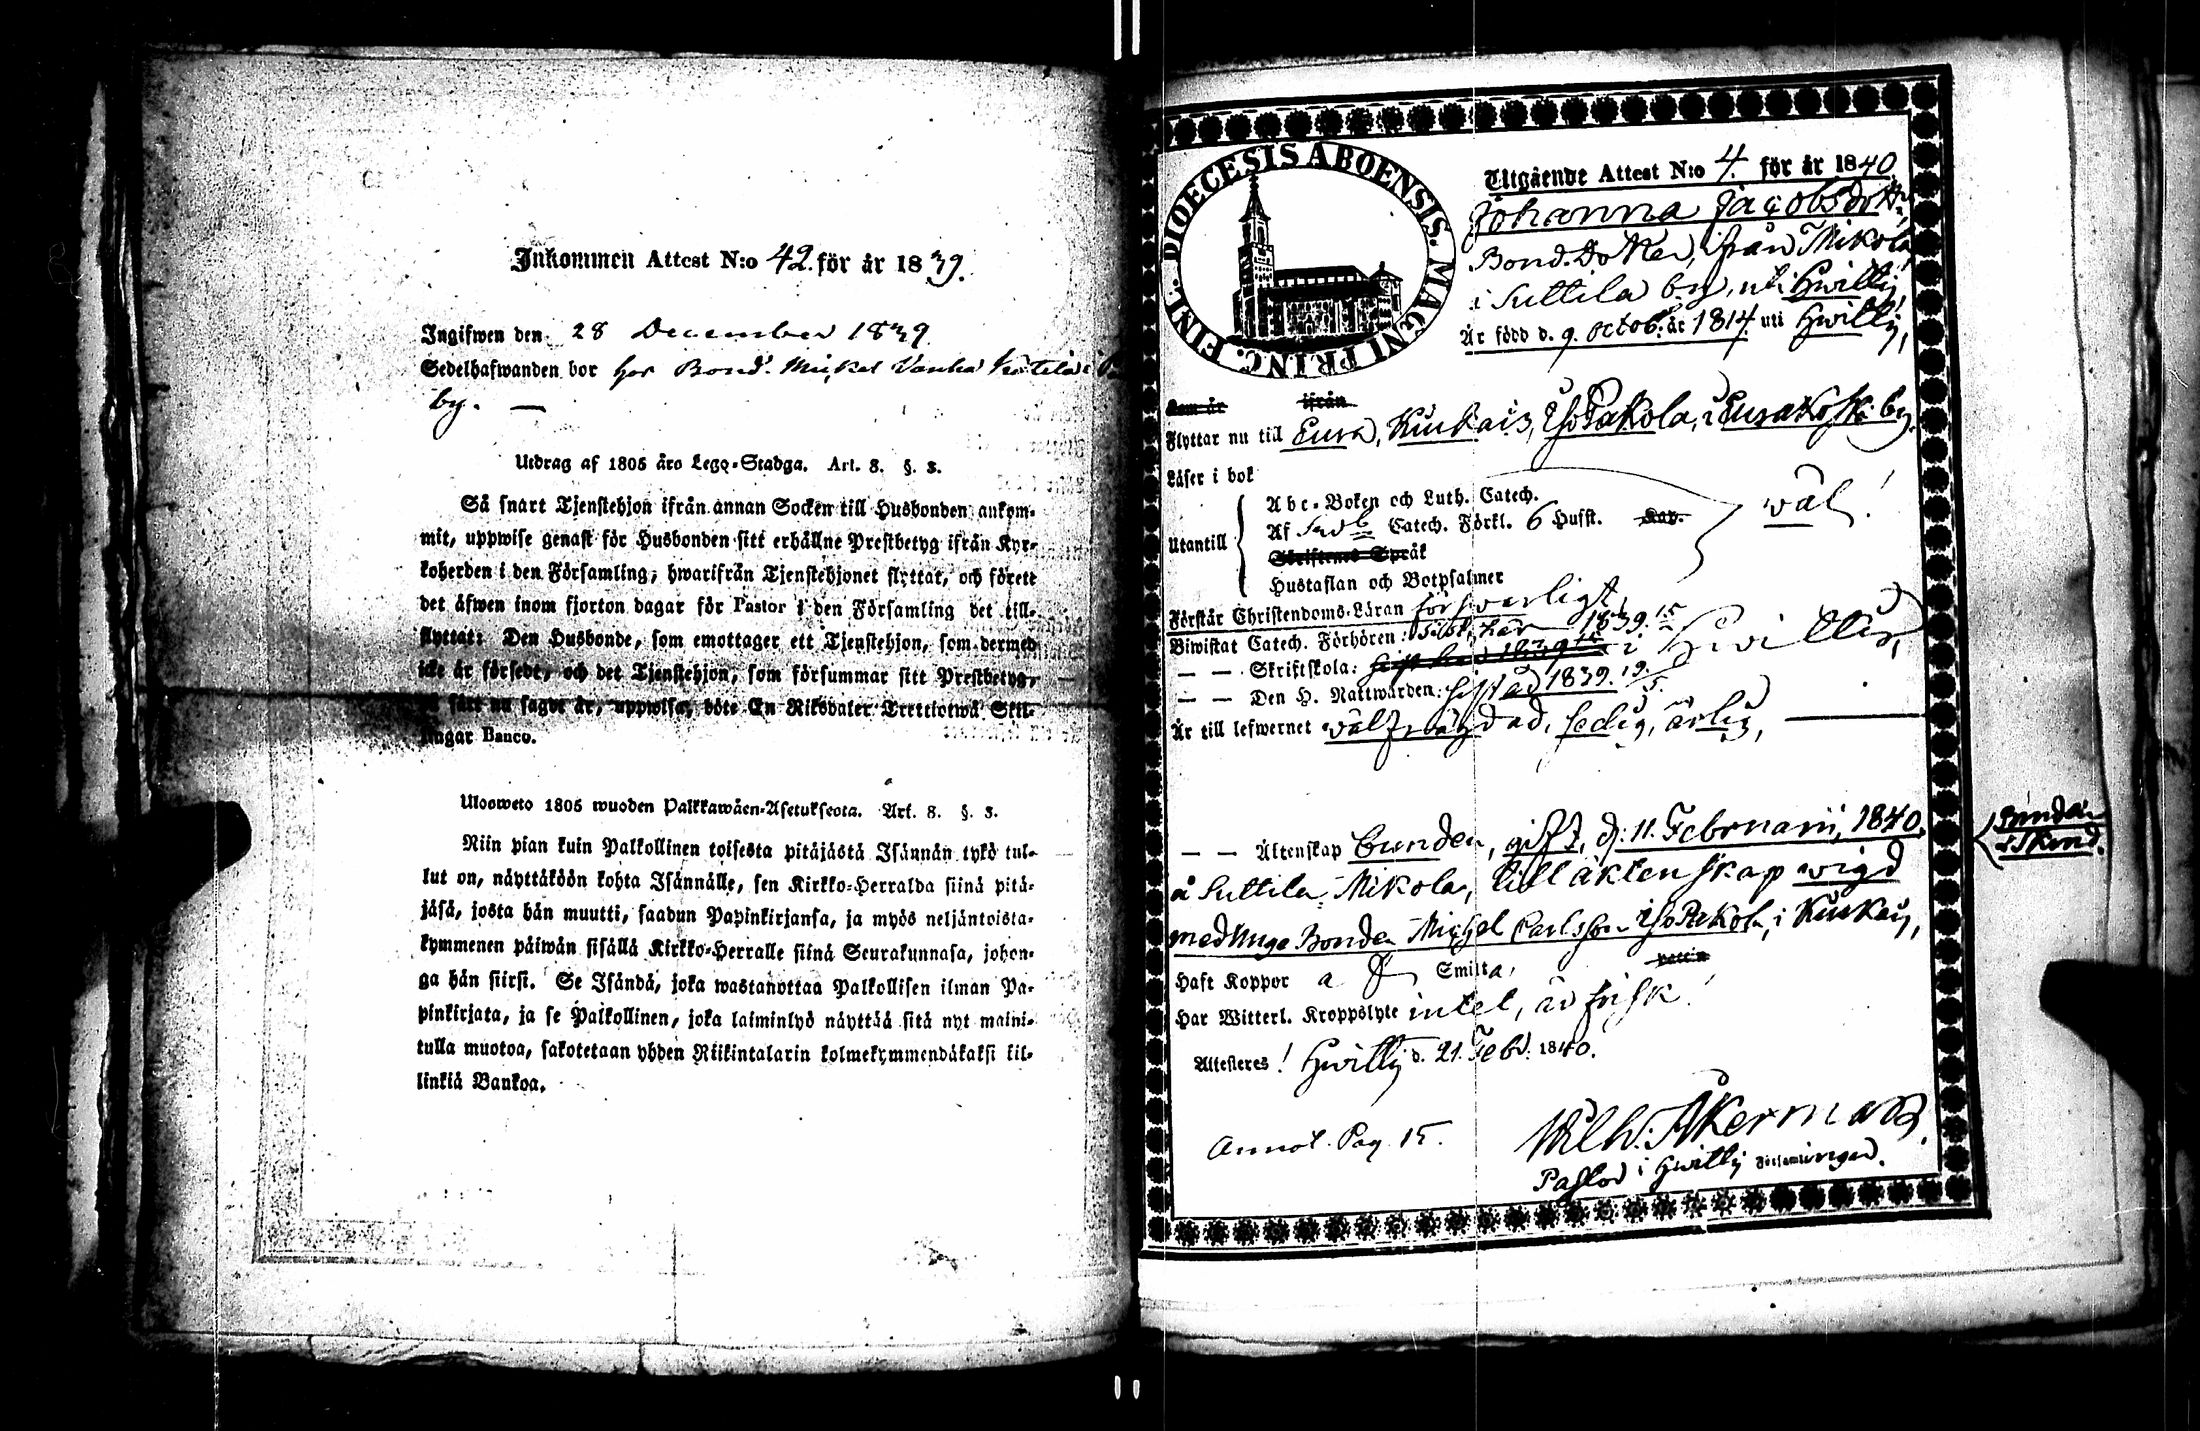 Inkommen Attest N:o 42. för år 1839.
Ingifwen den 28 December 1839.
Sedelhafwanden bor hos Bond. Mickel Vanha
by. —
Utdrag af 1805 års Lego-Stadga. Art. 8. §. 3.
Så snart Tjenstehjon ifrån annan Socken till Husbonden ankom-
mit, uppwise genast för Husbonden sitt erhållne Prestbetyg ifrån Kyr-
koherden i den Församling, hwarifrån Tjenstehjonet flyttat, och förete
det äfwen inom fjorton dagar för Pastor i den Församling det till-
flyttat: Den Husbonde, som emottager ett Tjenstehjon, som dermed
icke är försedt, och det Tjenstehjon, som försummar sitt Prestbetyg,
sätt nu sagdt är, uppwisa, böte En Riksdaler Trettiotwå Skil-
lingar Banco.
Ulosweto 1805 wuoden Palkkawäen-Asetuksesta. Art. 8. §. 3.
Niin pian kuin Palkollinen toisesta pitäjästä Isännän tykö tul-
lut on, näyttäköön kohta Isännälle, sen Kirkko-Herralda siinä pitä-
jäsä, josta hän muutti, saadun Papinkirjansa, ja myös neljäntoista-
kymmenen päiwän sisällä Kirkko-Herralle siinä Seurakunnasa, johon-
ga hän siirsi. Se Isändä, joka wastanottaa Palkollisen ilman Pa-
pinkirjata, ja se Palkollinen, joka laiminlyö näyttää sitä nyt maini-
tulla muotoa, sakotetaan yhden Riikintalarin kolmekymmendäkaksi kil-
linkiä Bankoa.
DIOECESIS ABOENSIS. MAGNI PRINC. FINL.
Utgående Attest N:o 4. för år 1840.
Johanna Jacobsdotter,
Bond. Dotter, ifrån Mikola
i Suttila by, uti Hwittis,
Är född d. 9. Octob. år 1814. uti Hwittis,
Som är ifrån
Flyttar nu till Eura, Kiukais, Iso Pakola, i Eurakoski by.
Läser i bok
Abc-Boken och Luth. Catech.
Utantill Af Catech. Förkl. 6 Hufst. Kap. wäl!
Skriftenes Språk
Hustaflan och Botpsalmer
Förstår Christendoms-Läran försvarligt,
Biwistat Catech. Förhören: här 1839. i Hwittis,
— — Skriftskola:
— — Den H. Nattwarden: sistad 1839. 19/5.
Är till lefwernet wälfrägdad, sedig, ärlig, —
— — Äktenskap bunden, gift, d. 11. Februarii, 1840,
å Suttila Mikola, till äktenskap wigd
med Unga Bonden Michel Carlsson Iso Pakola, i Kiukais,
Haft Koppor a
Har Witterl. Kroppslyte intet, är frisk!
Attesteres! Hwittis d. 21. Febr. 1840.
Annot. Pag. 15.
Wilh: Åkerman.
Pastor i Hwittis Församlingar.